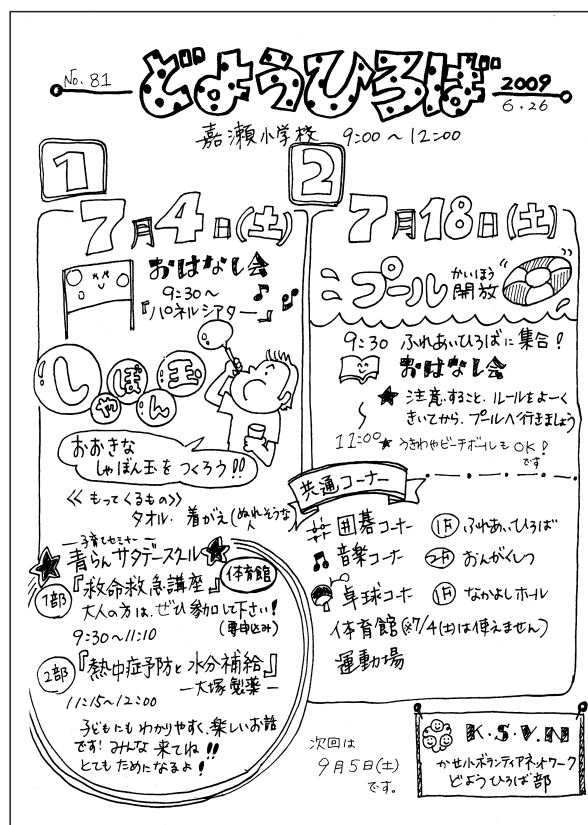 No. 81
どようひろば
2009
6.26
嘉瀬小学校 9:00～12:00
1
7月4日(土)
おはなし会
9:30～
『パネルシアター』
しゃぼん玉
おおきな
しゃぼん玉をつくろう!!
《もってくるもの》
タオル・着がえ(ぬれそうな人
ー子育てセミナーー
★青らんサタデースクール★
1部『救命救急講座』体育館
大人の方は、ぜひ参加して下さい!
(要申込み)
9:30～11:10
2部『熱中症予防と水分補給』
ー大塚製薬ー
11:15～12:00
子どもにもわかりやすく、楽しいお話
です!みんな来てね!!
とてもためになるよ!
2
7月18日(土)
プール開放
かいほう
9:30 ふれあいひろばに集合!
おはなし会
★注意すること、ルールをよーく
きいてから、プールへ行きましょう
～
11:00 ★うきわやビーチボールもOK!
です
共通コーナー
囲碁コーナー 1F ふれあいひろば
音楽コーナー 2F おんがくしつ
卓球コーナー 1F なかよしホール
体育館(※7/4(土)は使えません)
運動場
次回は
9月5日(土)
です。
K・S・V・N
かせ小ボランティアネットワーク
どようひろば部